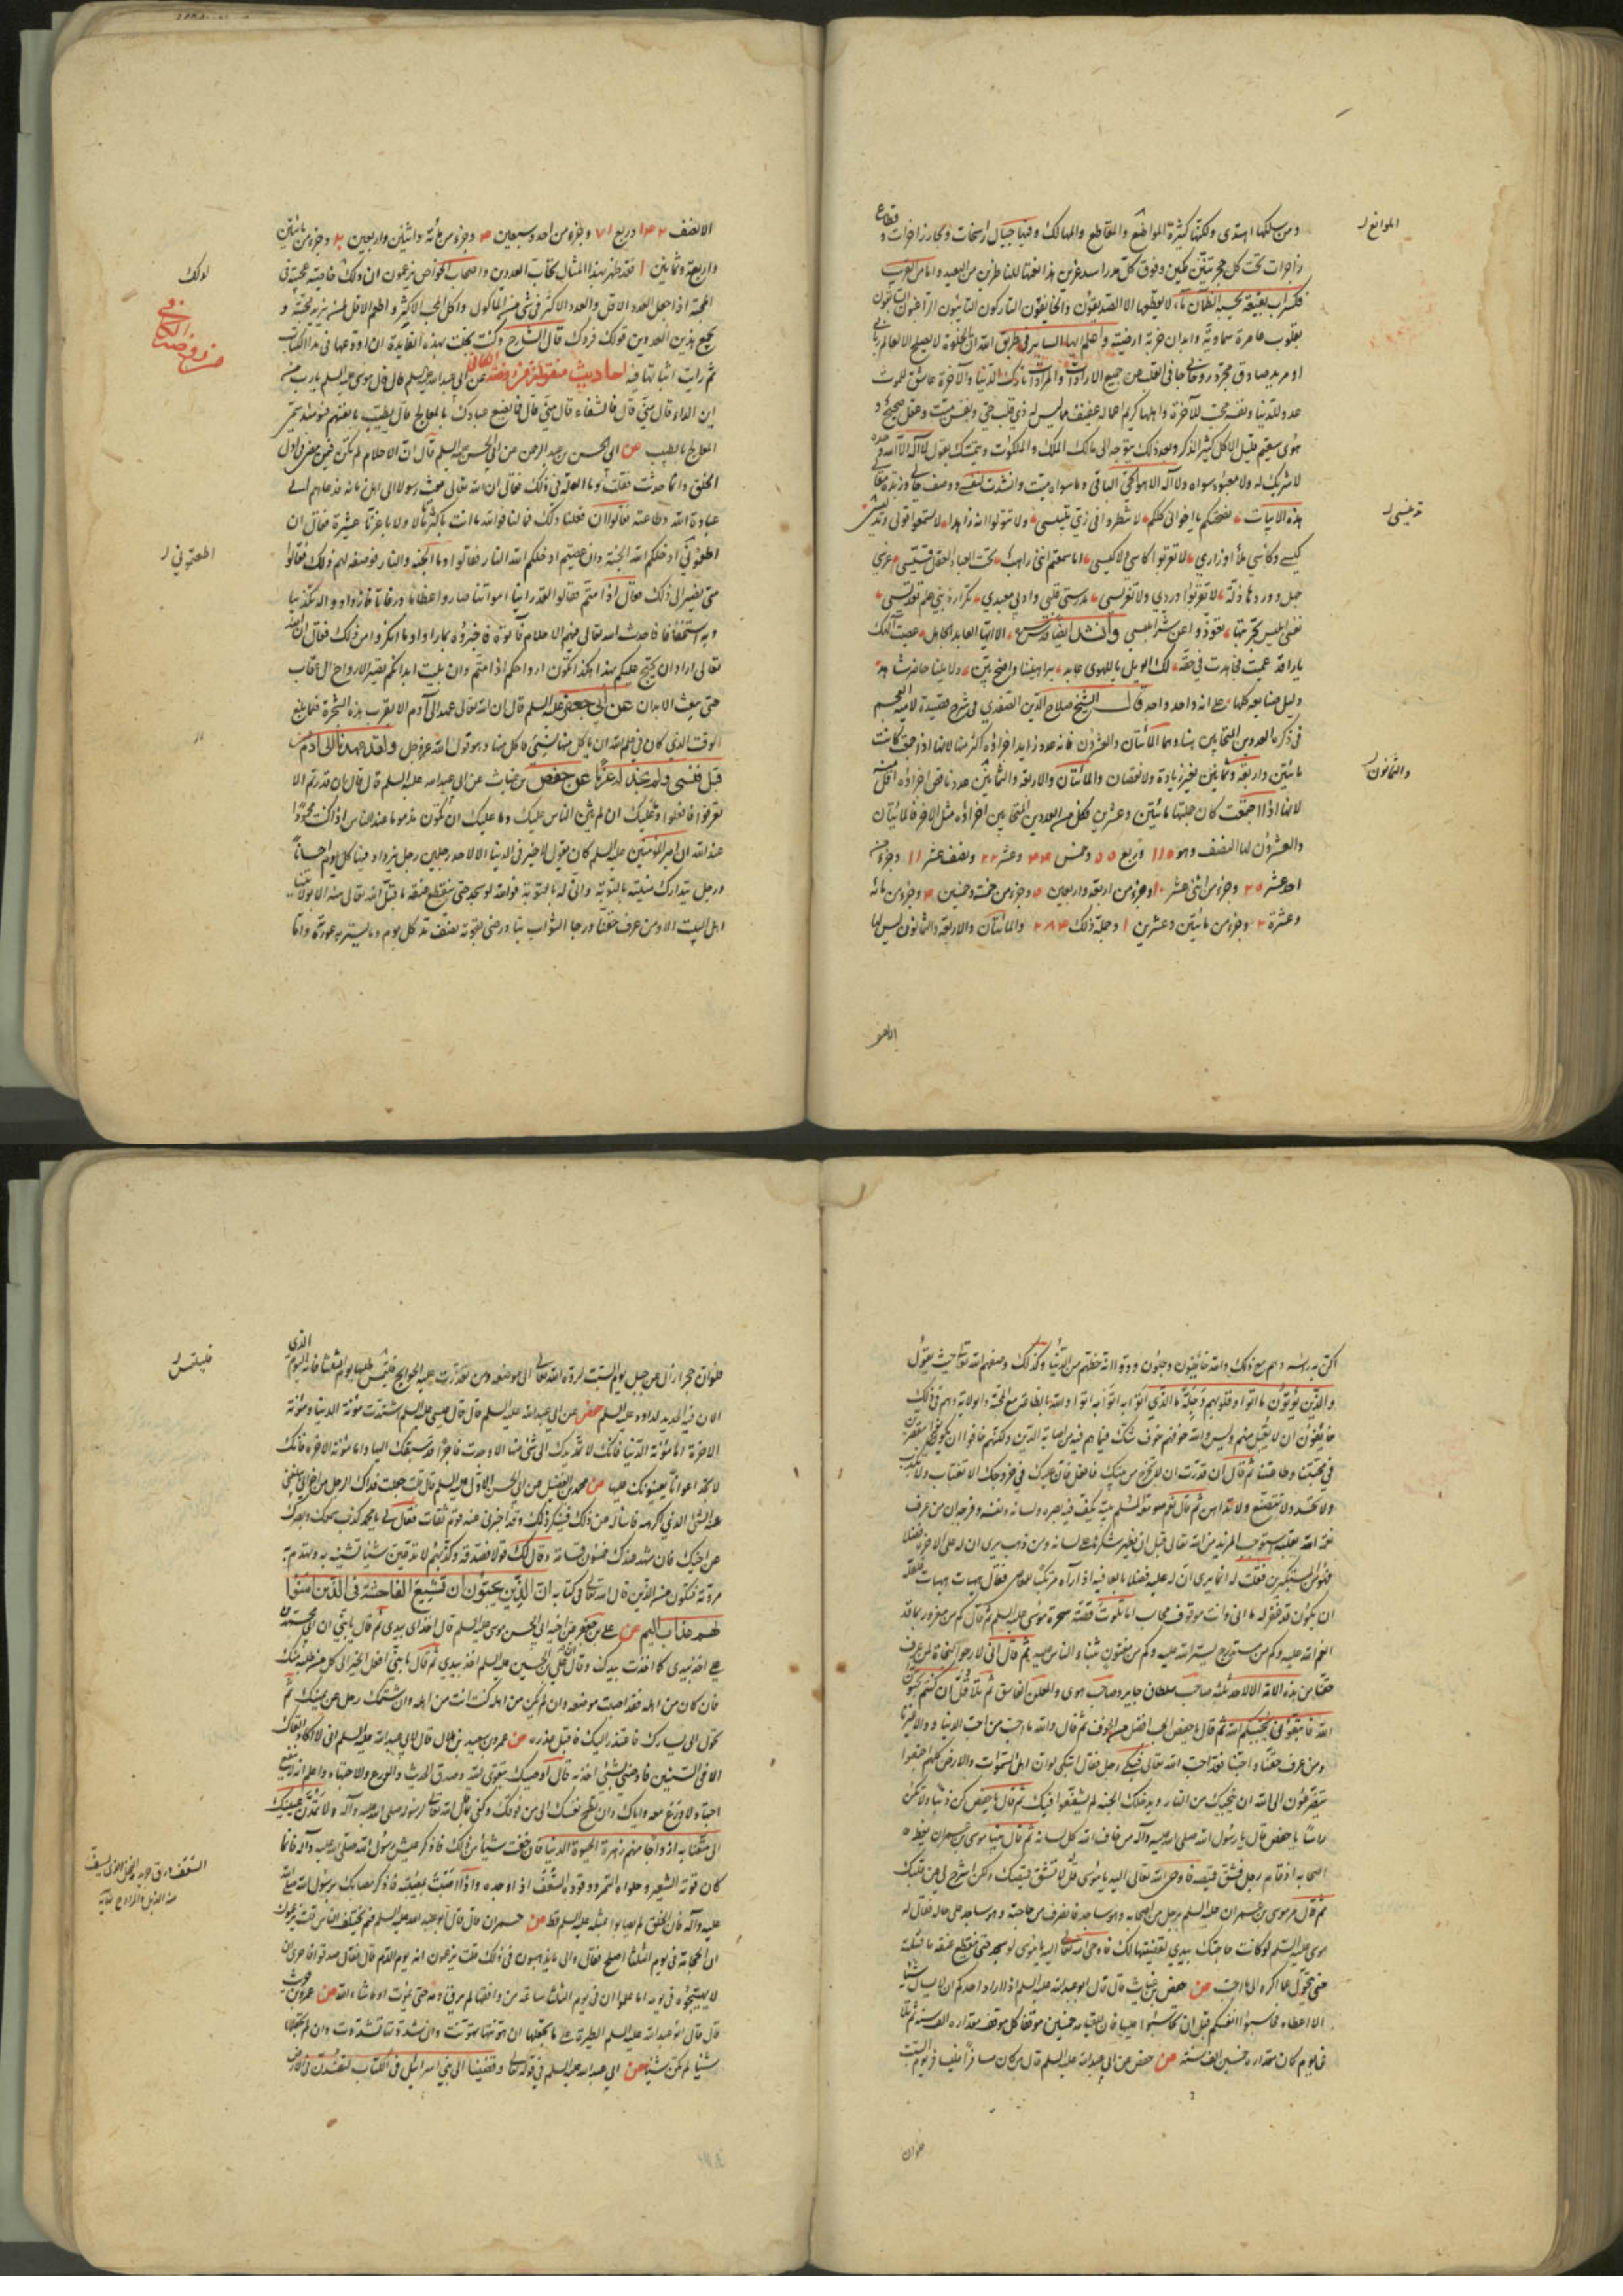 ومن سلكها اهتدى ولكنها كثيرة المواضع والمقاطع والمهالك وفيها جبال راسخات وبحار زاخرات و
قطاع
الموانع
زاجرات تحت كل حجر تنين وفوق كل مدر اسد عرين هذا نعتها للناظرين من البعيد واما من القريب
فكسراب بقيعة يحسبه الظمآن ماء لا يقطعها الا الصديقون
بقلوب طاهرة سماوية وابدان خربة ارضية واعلم ايها السائر في طريق الله ان الخلوة لا يصلح الا لعالم
او مريد صادق مجرد جافى القلب عن جميع الارادات والمرادات تارك الدنيا والآخرة عاشق للموت
عدو للدنيا ونفسه محب للآخرة واهلها كريم
هوى سقيم قليل الاكل كثير الذكر وبعد ذلك يتوجه الى مالك الملك والملكوت ويتمسك بقول لا اله الا الله وحده
لا شريك له ولا معبود سواه ولا اله الا هو الحي الباقي وما سواه ميت وانشدت لنفسي
هذه الابيات نصحتكم يا اخواني كلكم لا تنظروا في زي تلبيسي ولا تقولوا انه زاهد لا تسمعوا قولي
تدنيسي
كيسي وكاسي ملأ اوزاري لا تقربوا كاسي ولا كيسي اما سمعتم انني راهب تحت العبا
جبل وورد ها ذلة لا تقربوا وردي ولا تدريسي مدرستي قلبي وادبي معبدي تكرار ذنبي علم تقديسي
نفسي ابليس تجربتها تعوذوا عن شر ابليسي وانشد ايضا قدس سره الا ايها العابد الجاهل عصيت الهك
دليل صنايعه كلها على انه واحد واحد قال الشيخ صلاح الدين الصفدي في شرح قصيدة لامية العجم
في ذكر العددين المتحابين بينا وهما المأتان والعشرون فانه عدد زايد اجزاؤه اكثر منه لانها اذا جمعت كانت
مائتين واربعة وثمانين بغير زيادة ولا نقصان والمأتان والاربعة والثمانين عدد ناقص اجزاؤه اقل منه
والثمانون
لانها اذا اجتمعت كان جملتها مائتين وعشرين فكل من العددين المتحابين اجزاؤه مثل الاخر فالمائتان
والعشرون لها النصف وهو ١١٥ وربع ٥٥ وخمس ٤٤ وعشر ٢٢ ونصف عشر ١١ وجزء من
احد عشر ٢٠ وجزء من اثنى عشر ١٠ وجزء من اربعة واربعين ٥ وجزء من خمسة وخمسين ٤ وجزء من مائة
وعشرة ٢ وجزء من مائتين وعشرين ١ وجملة ذلك ٢٨٤ والمائتان والاربعة والثمانون ليس لها
الا هو
الا نصف ١٤٢ وربع ٧١ وجزء من احد وسبعين ٤ وجزء من مائة واثنين واربعين ٢ وجزء من مائتين
واربعة وثمانين ١ فقد ظهر بهذا المثال تحاب العددين واصحاب الخواص يزعمون ان لذلك خاصية عجيبة في
لذلك
المحبة اذا جعل العدد الاقل والعدد الاكثر في شئ من الماكول واكل المحب الاكثر واطعم الاقل لمن يريد محبته و
يجمع هذين العددين قولك فردك قال الشارح وكنت بخلت بهذه الفايدة ان اودعها في هذا الكتاب
ثم رايت اثباتها فيه احاديث متفرقة من روضة الكافي عن ابي عبد الله عليه السلم قال قال موسى عليه السلم يا رب من
من روضة الكافي
اين الداء قال مني قال فالشفاء قال مني قال فما يصنع عبادك بالمعالج قال يطيب بانفسهم فيومئذ سمى
المعالج بالطبيب عن ابي الحسن بن عبد الرحمن عن ابي الحسن عليه السلم قال ان الاحلام لم تكن فيما مضى في اول
الخلق وانما حدثت فقلت وما العلة في ذلك فقال ان الله تعالى بعث رسولا الى اهل زمانه فدعاهم الى
عبادة الله وطاعته فقالوا ان فعلنا ذلك فما لنا فوالله ما انت باكثرنا مالا ولا باعزنا عشيرة فقال ان
اطعتموني ادخلكم الله الجنة وان عصيتم ادخلكم الله النار فقالوا وما الجنة والنار فوصف لهم ذلك فقالوا
اطعتموني
متى نصير الى ذلك فقال اذا متم فقالوا لقد راينا امواتنا صاروا عظاما ورفاتا فازدادوا له تكذيبا
وبه استخفافا فاحدث الله تعالى فيهم الاحلام فأتوه فاخبروه بما راوا وما انكروا من ذلك فقال ان الله
تعالى اراد ان يحتج عليكم بهذا هكذا تكون ارواحكم اذا متم وان بليت ابدانكم تصير الارواح الى عقاب
حتى يبعث الابدان عن ابي جعفر عليه السلم قال ان الله تعالى عهد الى آدم الا يقرب هذه الشجرة فلما بلغ
الوقت الذي كان في علم الله ان ياكل منها نسي فاكل منها وهو قول الله عز وجل ولقد عهدنا الى ادم من
قبل فنسي ولم نجد له عزما عن حفص بن غياث عن ابي عبد الله عليه السلم قال قال ان قدرتم الا
تعرفوا فافعلوا وما عليك ان لم يثن الناس عليك وما عليك ان تكون مذموما عند الناس اذا كنت محمودا
عند الله ان امير المؤمنين عليه السلم كان يقول لا خير في الدنيا الا لاحد رجلين رجل يزداد فيها كل يوم احسانا
ورجل يتدارك منيته بالتوبة وانى له بالتوبة فوالله لو سجد حتى ينقطع عنقه ما قبل الله تعالى منه الا بولايتنا
اهل البيت الا ومن عرف حقنا ورجا الثواب بنا ورضي بقوته نصف مد كل يوم وما يستر به عورته وما
اكن به راسه وهم مع ذلك والله خايفون وجلون ودوا انه حظهم من الدنيا وكذلك وصفهم الله تعالى حيث يقول
والذين يؤتون ما اتوا وقلوبهم وجلة ما الذي اتوا به اتوا والله بالطاعة مع المحبة والولاية وهم في ذلك
خايفون ان لا يقبل منهم وليس والله خوفهم خوف شك فيما هم فيه من اصابة الدين ولكنهم خافوا ان يكونوا مقصرين
في محبتنا وطاعتنا ثم قال ان قدرت ان لا تخرج من بيتك فافعل فان عليك في خروجك الا تغتاب ولا تكذب
ولا تحسد ولا تتصنع ولا تداهن ثم قال نعم صومعة المسلم بيته يكف فيه بصره ولسانه ونفسه وفرجه ان من عرف
نعمة الله بقلبه استوجب المزيد من الله تعالى قبل ان يظهر شكرها على لسانه ومن ذهب يرى ان له على الاخر فضلا
فهو من المستكبرين فقلت له انما يرى ان له عليه فضلا بالعافية اذا رآه مرتكبا للمعاصي فقال هيهات هيهات فلعله
ان يكون قد غفر له ما اتى وانت موقوف محاسب اما تلوت قصة سحرة موسى عليه السلم ثم قال كم من مغرور بما قد
انعم الله عليه وكم من مستدرج بستر الله عليه وكم من مفتون بثناء الناس عليه ثم قال اني لارجو النجاة لمن عرف
حقنا من هذه الامة الا لاحد ثلثة صاحب سلطان جاير وصاحب هوى والفاسق المعلن ثم تلا قل ان كنتم تحبون
الله فاتبعوني يحببكم الله ثم قال يا حفص الحب افضل من الخوف ثم قال والله ما احب من احب الدنيا ووالى غيرنا
ومن عرف حقنا واحبنا فقد احب الله تعالى فبكى رجل فقال اتبكي لو ان اهل السموات والارض كلهم اجتمعوا
يتضرعون الى الله ان ينجيك من النار ويدخلك الجنة لم يشفعوا فيك ثم قال يا حفص كن ذنبا ولا تكن
راسا يا حفص قال رسول الله صلى الله عليه وآله من خاف الله كل لسانه ثم قال بينا موسى بن عمران يعظ
اصحابه اذ قام رجل فشق قميصه فاوحى الله تعالى اليه يا موسى قل لا تشق قميصك ولكن اشرح لي عن قلبك
ثم قال مر موسى بن عمران عليه السلم برجل من اصحابه وهو ساجد فانصرف من حاجته وهو ساجد على حاله فقال له
موسى عليه السلم لو كانت حاجتك بيدي لقضيتها لك فاوحى الله تعالى اليه يا موسى لو سجد حتى ينقطع عنقه ما قبلته
حتى يتحول عما اكره الى ما احب عن حفص بن غياث قال قال ابو عبد الله عليه السلم اذا اراد احدكم ان لا يسال شيئا
الا اعطاه فحاسبوا انفسكم قبل ان تحاسبوا عليها فان للقيامة خمسين موقفا كل موقف مقداره الف سنة ثم تلا
في يوم كان مقداره خمسين الف سنة عن حفص عن ابي عبد الله عليه السلم قال من كان مسافرا فليسافر يوم السبت
فلوان
فلوان حجرا زال عن جبل يوم السبت لرده الله تعالى الى موضعه ومن تعذرت عليه الحوايج فليلتمس طلبها يوم الثلثا فانه اليوم الذي
فليلتمس
الان فيه الحديد لداود عليه السلم حفص عن ابي عبد الله عليه السلم قال قال عيسى عليه السلم اشتدت مؤنة الدنيا ومؤنة
الاخرة اما مؤنة الدنيا فانك لا تمد يدك الى شئ منها الا وجدت فاجرا قد سبقك اليها واما مؤنة الاخرة فانك
لا تجد اعوانا يعينونك عليها عن محمد بن الفضيل عن ابي الحسن الاول عليه السلم قال قلت جعلت فداك الرجل من اخواني يبلغني
عنه الشئ الذي اكرهه فاساله عن ذلك فينكر ذلك وقد اخبرني عنه قوم ثقات فقال لي يا محمد كذب سمعك وبصرك
عن اخيك فان شهد عندك خمسون قسامة وقال لك قولا فصدقه وكذبهم لا تذيعن شيئا تشينه به وتهدم به
مروته فتكون من الذين قال الله تعالى في كتابه ان الذين يحبون ان تشيع الفاحشة في الذين امنوا
لهم عذاب اليم عن علي بن جعفر عن اخيه ابي الحسن موسى عليه السلم قال اخذ ابي بيدي ثم قال يا بني ان ابي محمد بن
علي اخذ بيدي كما اخذت بيدك وقال ان علي بن الحسين عليه السلم اخذ بيدي ثم قال يا بني افعل الخير الى كل من طلبه منك
فان كان من اهله فقد اصبت موضعه وان لم يكن من اهله كنت انت من اهله وان شتمك رجل عن يمينك ثم
تحول الى يسارك فاعتذر اليك فاقبل عذره عن عمرو بن سعيد بن هلال قال قلت لابي عبد الله عليه السلم اني لا اكاد القاك
الا في السنين فاوصني بشئ اخذ به قال اوصيك بتقوى الله وصدق الحديث والورع والاجتهاد واعلم انه لا ينفع
اجتهاد لا ورع معه واياك وان تطمح نفسك الى من فوقك وكفى بما قال الله تعالى لرسوله صلى الله عليه وآله ولا تمدن عينيك
الى ما متعنا به ازواجا منهم زهرة الحيوة الدنيا فان خفت شيئا من ذلك فاذكر عيش رسول الله صلى الله عليه وآله فانما
كان قوته الشعير وحلواه التمر ووقوده السعف اذا وجده واذا اصبت بمصيبة فاذكر مصابك برسول الله صلى الله
السعف ورق جريد النخل
عليه وآله فان الخلق لم يصابوا بمثله عليه السلم قط عن حمران قال قال ابو عبد الله عليه السلم فيم يختلف الناس قلت يزعمون
ان الحجامة في يوم الثلثا اصلح فقال والى ما يذهبون في ذلك قلت يزعمون انه يوم الدم قال فقال صدقوا فاحرى ان
لا يهيجوه في يومه اما علموا ان في يوم الثلثا ساعة من وافقها لم يرق دمه حتى يموت او ما شاء الله عن عمرو بن حريث
قال قال ابو عبد الله عليه السلم الطيرة على ما تجعلها ان هونتها تهونت وان شددتها تشددت وان لم تجعلها
شيئا لم تكن شيئا عن ابي عبد الله عليه السلم في قوله تعالى وقضينا الى بني اسرائيل في الكتاب لتفسدن في الارض